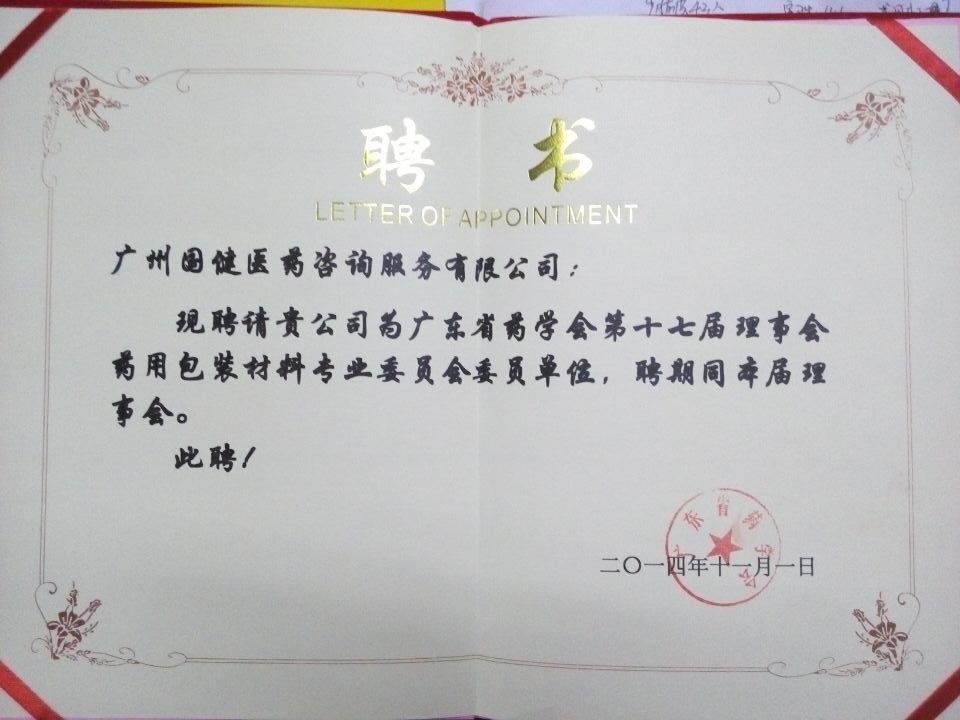 聘书
LETTER OF APPOINTMENT
广州国健医药咨询服务有限公司：
现聘请贵公司为广东省药学会第十七届理事会
药用包装材料专业委员会委员单位，聘期同本届理
事会。
此聘！
广东省药学会
二〇一四年十一月一日